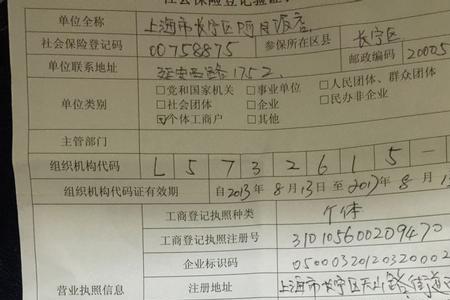 社会保险登记验证
单位全称 上海市长宁区阿月饭店
社会保险登记码 00758875 参保所在区县 长宁区
邮政编码 20005
单位联系地址 延安西路1752
单位类别 □党和国家机关 □事业单位 □人民团体、群众团体
□社会团体 □企业 □民办非企业
☑个体工商户 □其他
主管部门
组织机构代码 L 5 7 3 2 6 1 5 -
组织机构代码证有效期 自2013年8月13日至2017年8月1
营业执照信息
工商登记执照种类 个体
工商登记执照注册号 310105600209470
企业标识码 05000320120320002
注册地址 上海市长宁区天山路街道